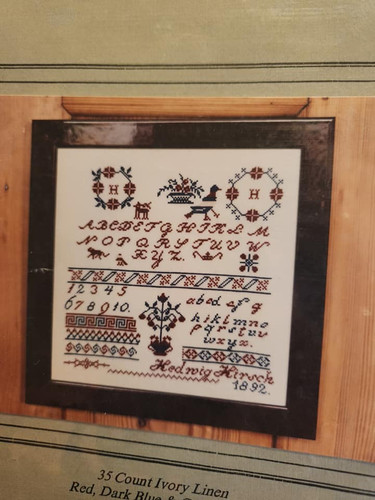 H H
ABCDEFGHIJKLM
NOPQRSTUVW
XYZ.
12345
67890.
abcdefg
hiklmno
pqrstuv
wxyz.
Hedwig Hirsch
1892.
35 Count Ivory Linen
Red, Dark Blue &